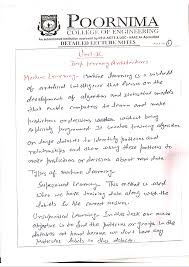 POORNIMA
COLLEGE OF ENGINEERING
DETAILED LECTURE NOTES
Unit-IV
Deep Learning Architectures
Machine Learning:- Machine learning is a subfield
of artificial intelligence that focuses on the
development of algorithm and statistical models
that enable computers to learn and make
predictions without being
explicitly programmed. It involves training algorithm
on large datasets to identify patterns and
relationships and then using these patterns to
make predictions or decisions about new data.
Types of Machine Learning:-
Supervised Learning:- This method is used
when we have training data along with the
labels for the correct answer.
Unsupervised Learning:- In this task our main
objective is to find the patterns or groups in the
dataset at hand because we don't have any
particular labels in this dataset.